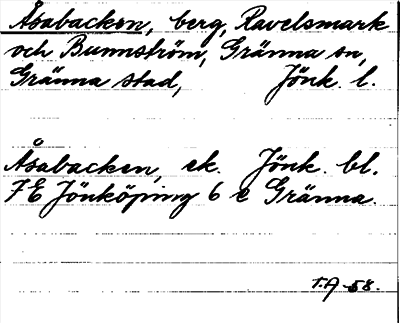 Åsabacken, berg, Ravelsmark
och Bunnström, Gränna sn,
Gränna stad, Jönk. l.
Åsabacken, ek. Jönk. bl.
7E Jönköping 6 e Gränna.
T.A -58.